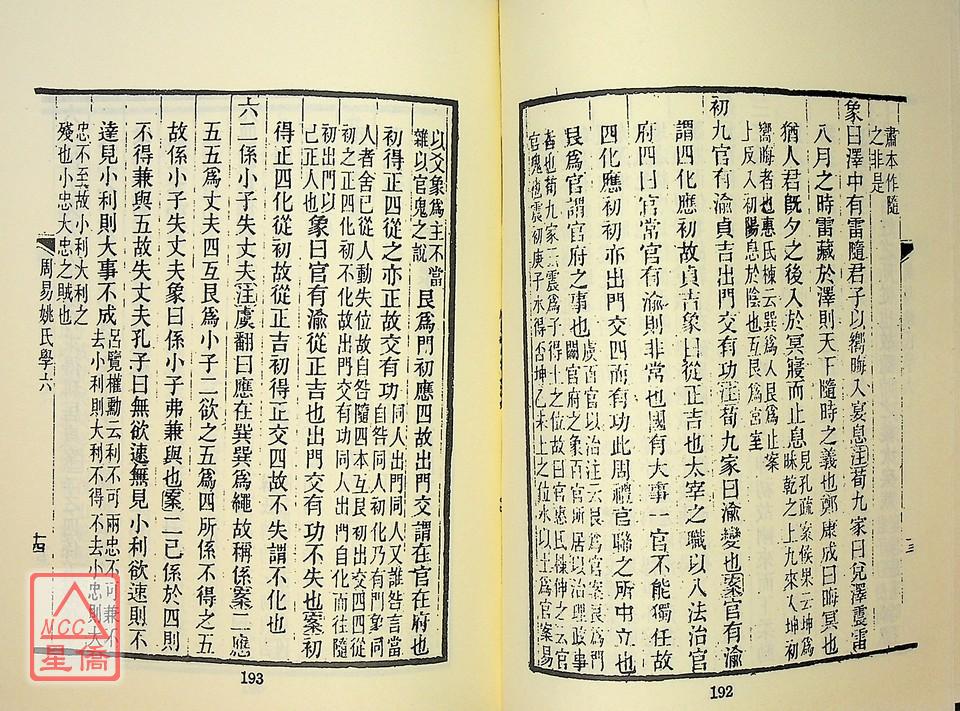 肅本作隨
之非是
象曰澤中有雷隨君子以嚮晦入宴息注荀九家曰兌澤震雷
八月之時雷藏於澤則天下隨時之義也鄭康成曰晦冥也
猶人君旣夕之後入於冥寢而止息
見孔疏案候果云坤爲
昧乾之上九來入坤初
嚮晦者也惠氏棟云巽爲人艮爲止案
上反入初陽息於陰也互艮爲宮室
初九官有渝貞吉出門交有功注荀九家曰渝變也案官有渝
謂四化應初故貞吉象曰從正吉也太宰之職以八法治官
府四曰官常官有渝則非常也國有大事一官不能獨任故
四化應初初亦出門交四而有功此周禮官聯之所由立也
艮爲官謂官府之事也
虞百官以治注云艮爲官案艮爲門
闕官府之象百官所居以治理政事
者也荀九家云震爲子得土之位故曰官惠氏棟伸之云官
官鬼也震初庚子水得否坤乙未土之位水以土爲官案易
以爻象爲主不當
雜以官鬼之說
艮爲門初應四故出門交謂在官在府也
初得正四從之亦正故交有功
同人出門同人又誰咎言當
自咎同人初化乃有門象同
人者舍已從人動失位故自咎隨四本互艮初出交四四從
初之正四化初不化故出門交有功同人出門自化而往隨
初出門以
已正人也
象曰官有渝從正吉也出門交有功不失也案初
得正四化從初故從正吉初得正交四故不失謂不化也
六二係小子失丈夫注虞翻曰應在巽巽爲繩故稱係案二應
五五爲丈夫四互艮爲小子二欲之五爲四所係不得之五
故係小子失丈夫象曰係小子弗兼與也案二已係於四則
不得兼與五故失丈夫孔子曰無欲速無見小利欲速則不
達見小利則大事不成
呂覽權勳云利不可兩忠不可兼不
去小利則大利不得不去小忠則大
忠不至故小利大利之
殘也小忠大忠之賊也
周易姚氏學六
十四
193
192
NCC
星僑